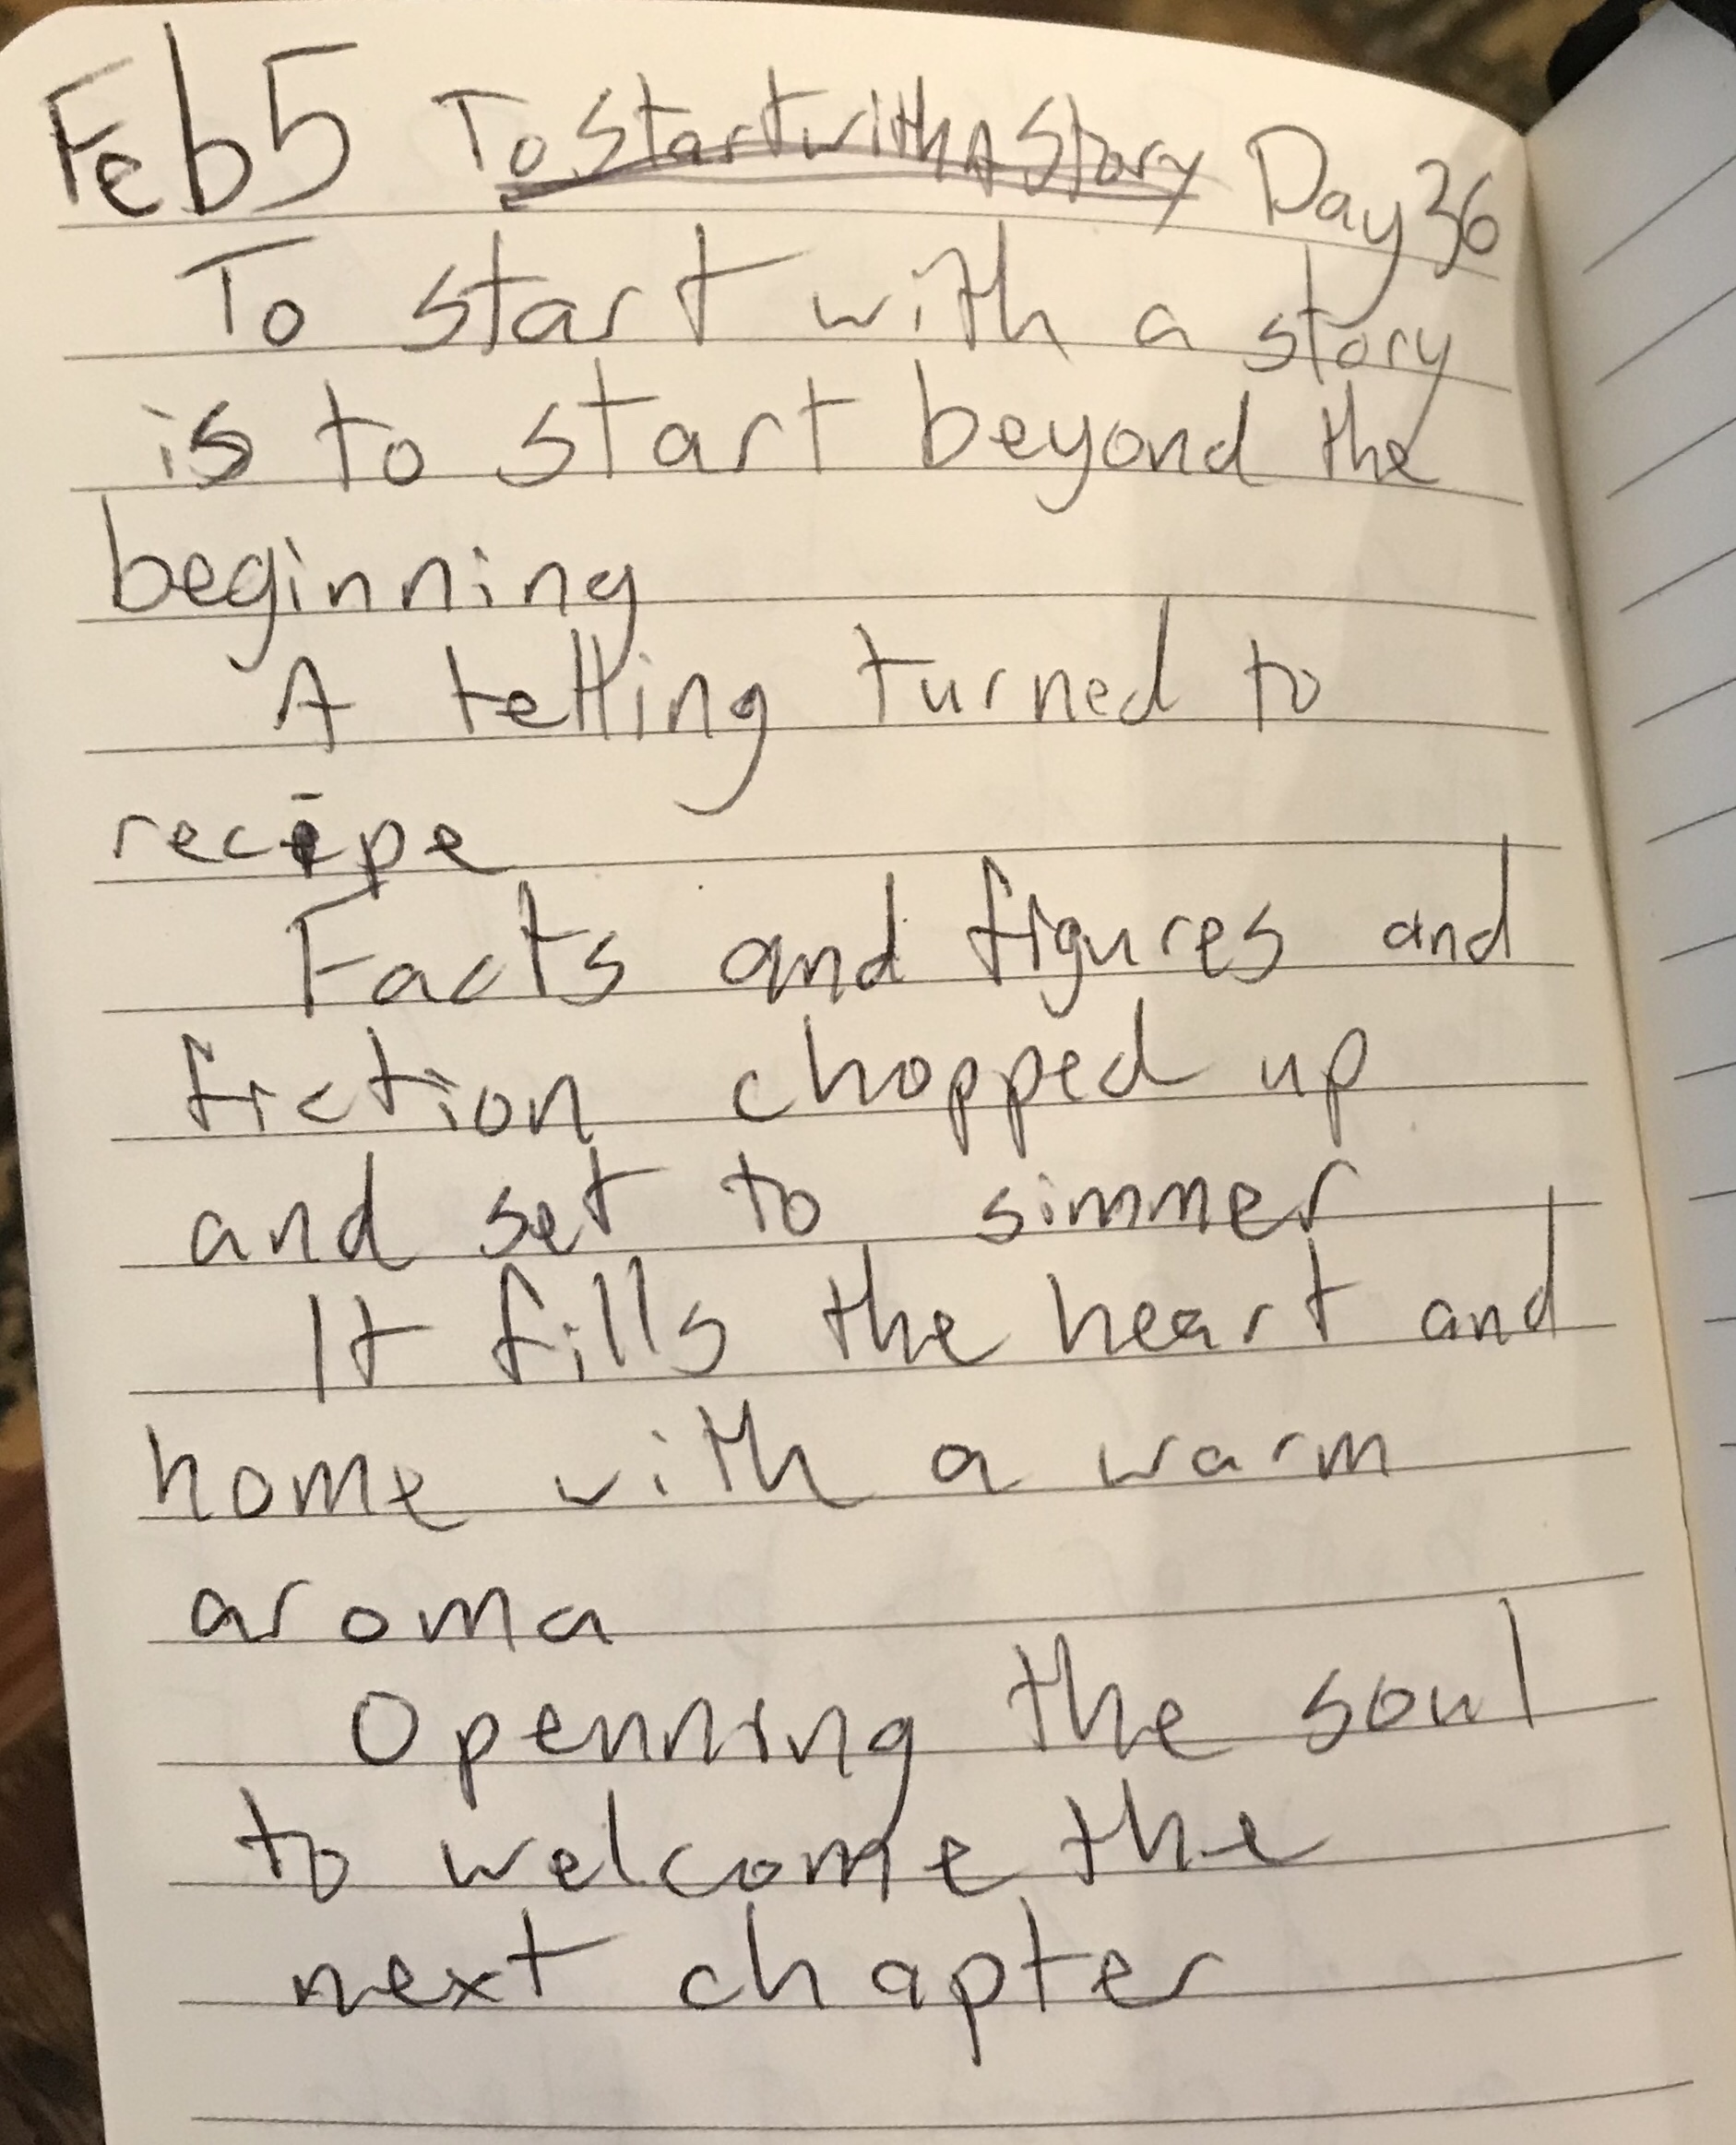 Feb 5 To Start with A Story Day 36
To start with a story
is to start beyond the
beginning
A telling turned to
recipe
Facts and figures and
fiction chopped up
and set to simmer
It fills the heart and
home with a warm
aroma
Openning the soul
to welcome the
next chapter